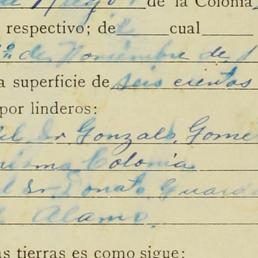 de la Colonia
respectivo; del cual
de Noviembre de 1
a superficie de seis cientos
por linderos:
el Sr Gonzalo Gome
misma Colonia
el Sr. Donato Guard
Alamo.
as tierras es como sigue: